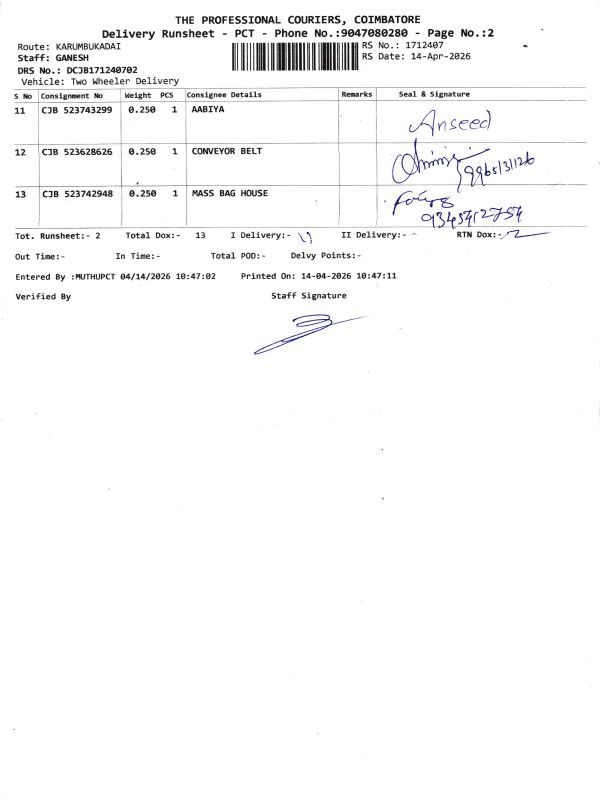 THE PROFESSIONAL COURIERS, COIMBATORE
Delivery Runsheet - PCT - Phone No.:9047080280 - Page No.:2
Route: KARUMBUKADAI RS No.: 1712407
Staff: GANESH RS Date: 14-Apr-2026
DRS No.: DCJB171240702
Vehicle: Two Wheeler Delivery
S No Consignment No Weight PCS Consignee Details Remarks Seal & Signature
11 CJB 523743299 0.250 1 AABIYA Anseed
12 CJB 523628626 0.250 1 CONVEYOR BELT 9965131126
13 CJB 523742948 0.250 1 MASS BAG HOUSE
Tot. Runsheet:- 2 Total Dox:- 13 I Delivery:- 11 II Delivery:- RTN Dox:- 2
Out Time:- In Time:- Total POD:- Delvy Points:-
Entered By :MUTHUPCT 04/14/2026 10:47:02 Printed On: 14-04-2026 10:47:11
Verified By Staff Signature